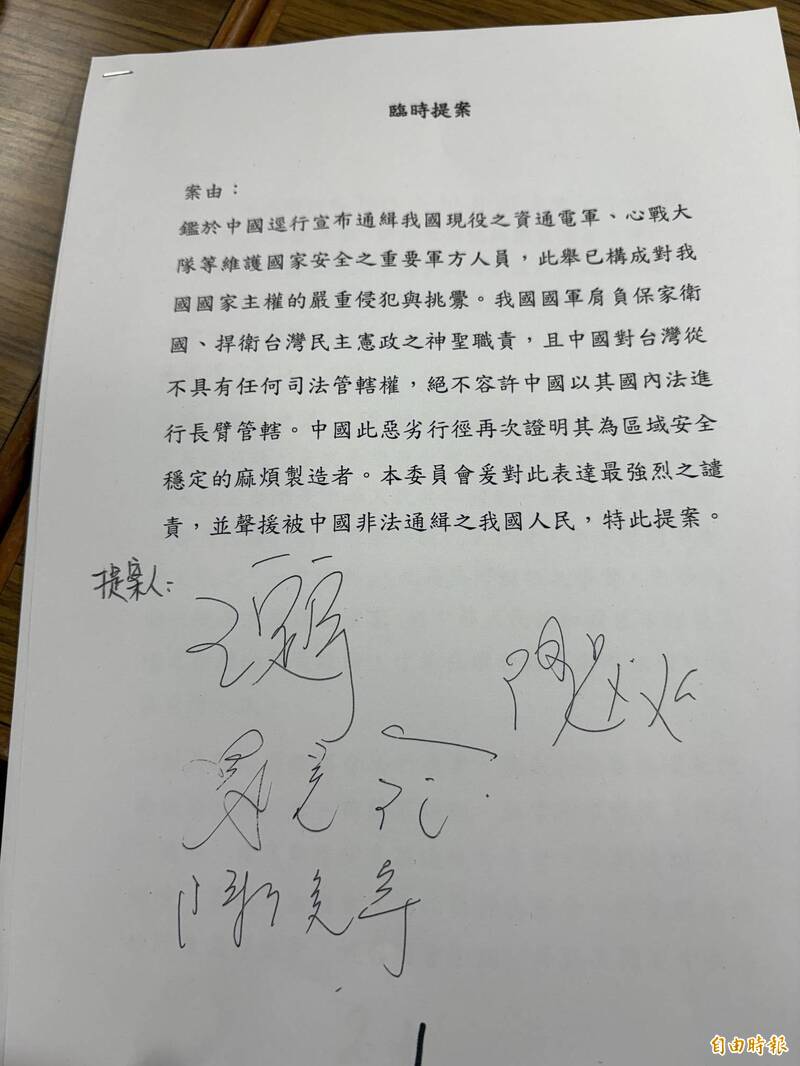 臨時提案
案由：
鑑於中國逕行宣布通緝我國現役之資通電軍、心戰大
隊等維護國家安全之重要軍方人員，此舉已構成對我
國國家主權的嚴重侵犯與挑釁。我國國軍肩負保家衛
國、捍衛台灣民主憲政之神聖職責，且中國對台灣從
不具有任何司法管轄權，絕不容許中國以其國內法進
行長臂管轄。中國此惡劣行徑再次證明其為區域安全
穩定的麻煩製造者。本委員會爰對此表達最強烈之譴
責，並聲援被中國非法通緝之我國人民，特此提案。
提案人：
自由時報